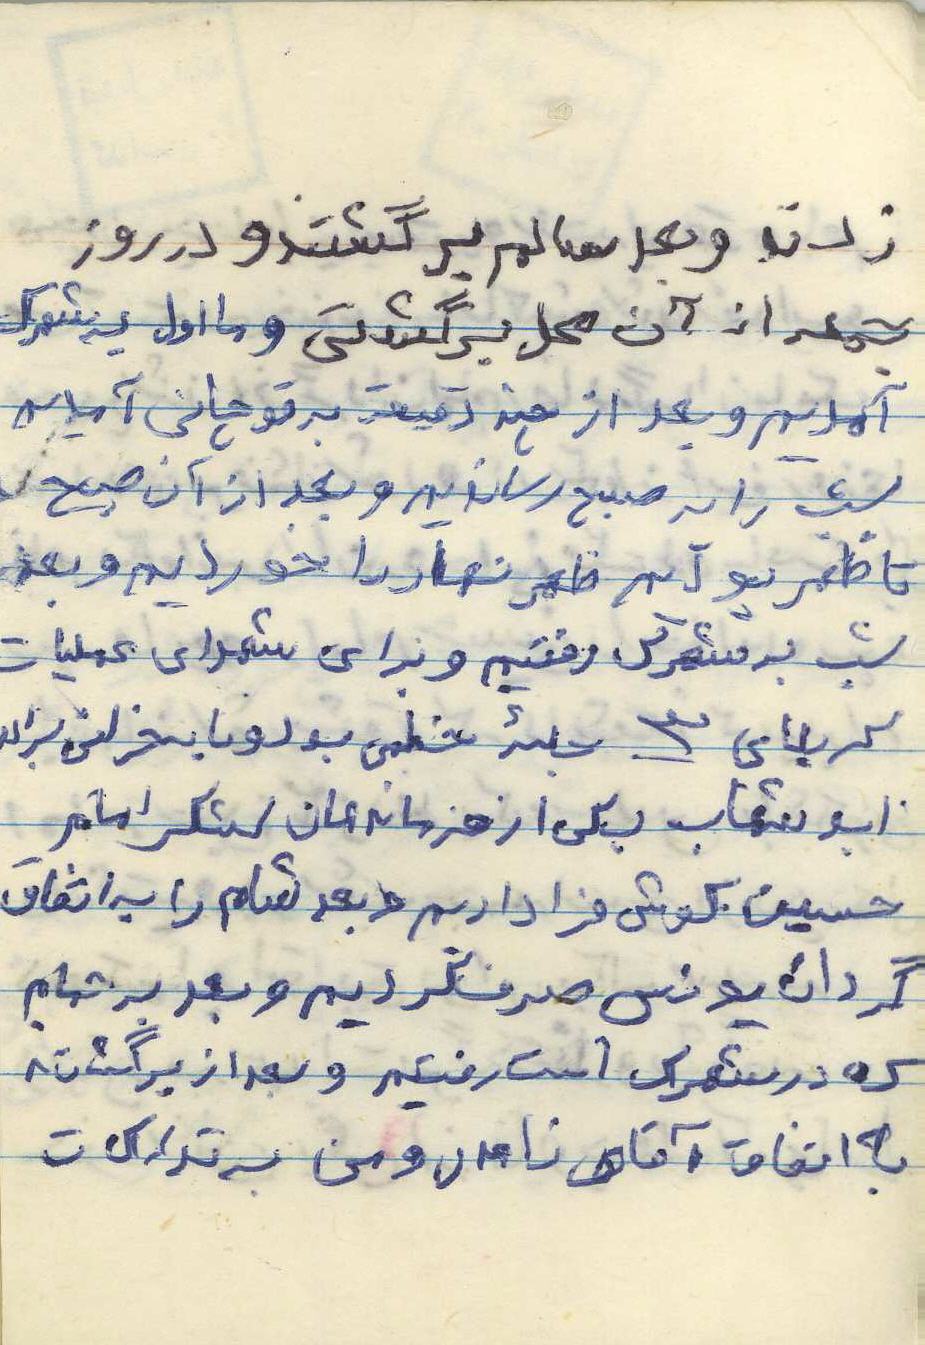 زدند و بعد سالم برگشتند و در روز
جمعه از آن محل برگشتی و ما اول به شهرک
آمدیم و بعد از چند دقیقه به قوچانی آمدیم
شب را به صبح رساندیم و بعد از آن صبح
تا ظهر بودیم ظهر نهار را خوردیم و بعد
شب به شهرک رفتیم و برای شهدای عملیات
کربلای ۳ جلسهٔ ختمی بود و ما به سخرانی برادر
یکی از فرماندهان لشکر امام
حسین گوش فرا دادیم و بعد شام را به اتفاق
گردان یونس صرف کردیم و بعد به حمام
که در شهرک است رفتیم و بعد از برگشتن
با اتفاق آقای و من به تدارکات